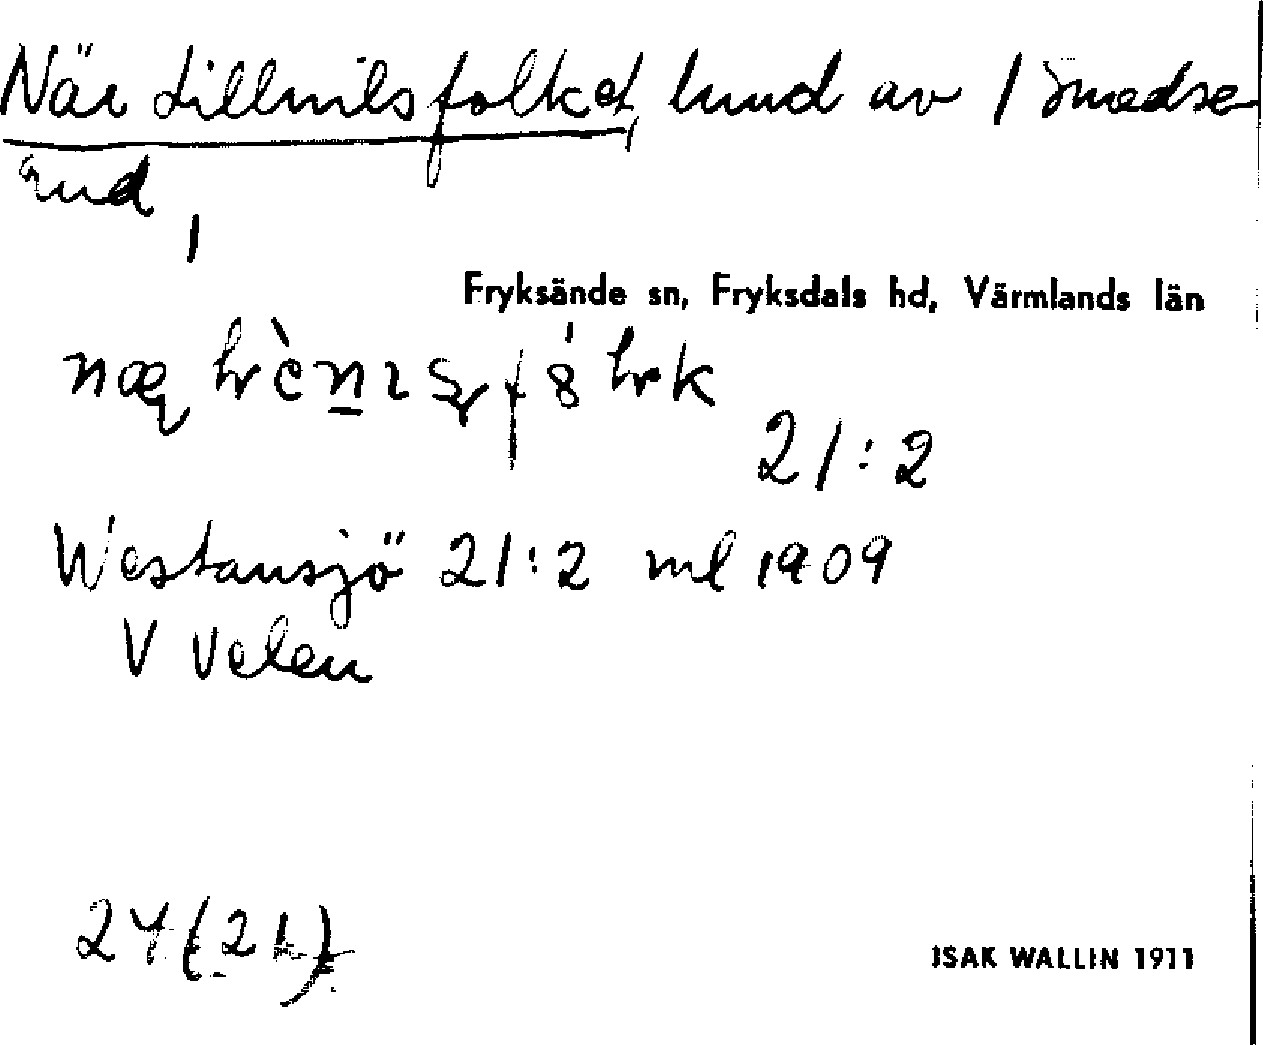 När Lillnilsfolket, hund av / Smedse
rud,
Fryksände sn, Fryksdals hd, Värmlands län
21:2
Westansjö 21:2 ml 1909
V Velen
24 (21)
ISAK WALLIN 1911